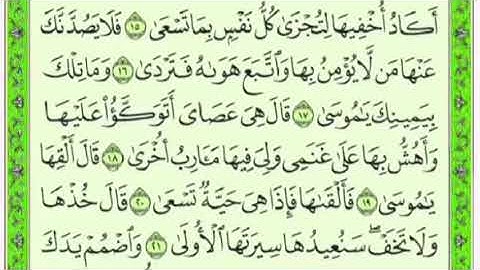 أَكَادُ أُخْفِيهَا لِتُجْزَىٰ كُلُّ نَفْسٍۭ بِمَا تَسْعَىٰ ١٥ فَلَا يَصُدَّنَّكَ
عَنْهَا مَن لَّا يُؤْمِنُ بِهَا وَٱتَّبَعَ هَوَىٰهُ فَتَرْدَىٰ ١٦ وَمَا تِلْكَ
بِيَمِينِكَ يَٰمُوسَىٰ ١٧ قَالَ هِىَ عَصَاىَ أَتَوَكَّؤُا۟ عَلَيْهَا
وَأَهُشُّ بِهَا عَلَىٰ غَنَمِى وَلِىَ فِيهَا مَـَٔارِبُ أُخْرَىٰ ١٨ قَالَ أَلْقِهَا
يَٰمُوسَىٰ ١٩ فَأَلْقَىٰهَا فَإِذَا هِىَ حَيَّةٌ تَسْعَىٰ ٢٠ قَالَ خُذْهَا
وَلَا تَخَفْ ۖ سَنُعِيدُهَا سِيرَتَهَا ٱلْأُولَىٰ ٢١ وَٱضْمُمْ يَدَكَ